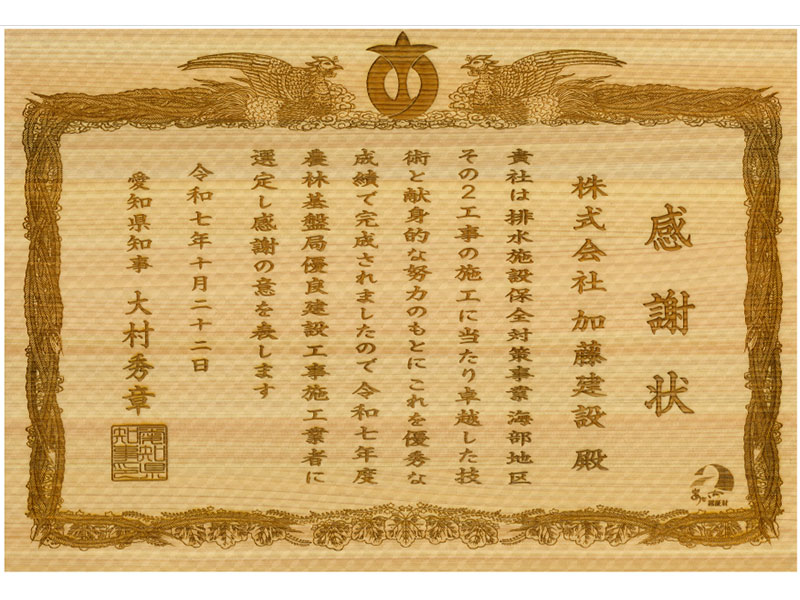 感謝状
株式会社 加藤建設 殿
貴社は排水施設保全対策事業 海部地区
その2工事の施工に当たり卓越した技
術と献身的な努力のもとにこれを優秀な
成績で完成されましたので令和七年度
農林基盤局優良建設工事施工業者に
選定し感謝の意を表します
令和七年十月二十二日
愛知県知事 大村秀章
愛知県
知事之印